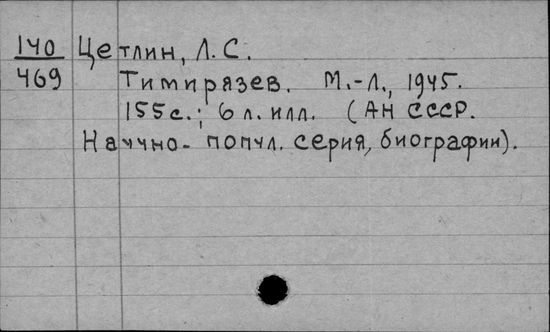 140 Цетлин, Л. С.
469 Тимирязев. М.-Л., 1945.
155 с.; 6 л. илл. (АН СССР.
Научно-попул. серия, биографии).